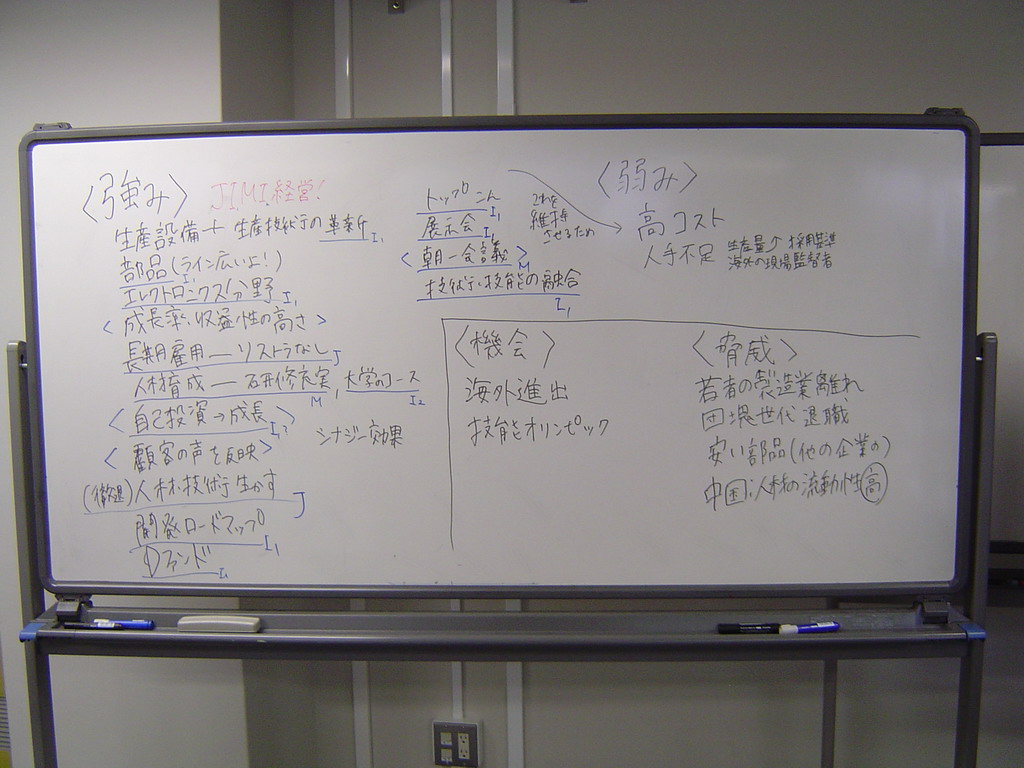 〈強み〉 JIMI経営!
生産設備+生産技術の革新 I₁
部品(ライン広いよ!) I₁
エレクトロニクス分野 I₁
〈成長率、収益性の高さ〉
長期雇用―リストラなし J
人材育成―研修充実 M, 大学のコース I₂
〈自己投資→成長〉 I₁?
〈顧客の声を反映〉
シナジー効果
(徹退)人材・技術、生かす J
開発ロードマップ I₁
Dファンド I₁
トップこん I₁
展示会 I₁
〈朝一会議〉 M
技術・技能の融合 I₁
これを
維持
させるため
〈弱み〉
高コスト
人手不足 生産量↑ 採用基準
海外の現場監督者
〈機会〉
海外進出
技能オリンピック
〈脅威〉
若者の製造業離れ
団塊世代退職
安い部品(他の企業の)
中国:人材の流動性高